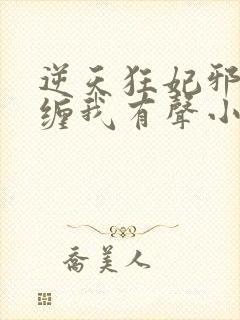 逆天狂妃邪
缠我有聲小
喬美人